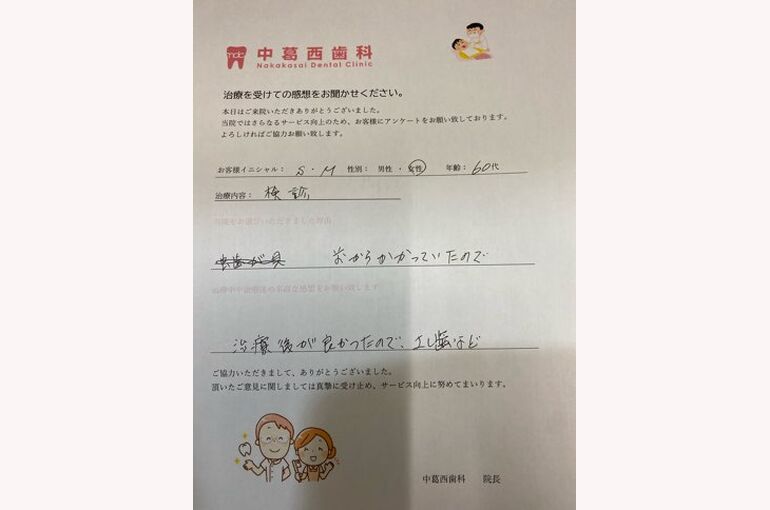 ndc 中葛西歯科
Nakakasai Dental Clinic
治療を受けての感想をお聞かせください。
本日はご来院いただきありがとうございました。
当院ではさらなるサービス向上のため、お客様にアンケートをお願い致しております。
よろしければご協力お願い致します。
お客様イニシャル: S・M 性別: 男性・女性 年齢: 60代
治療内容: 検診
当院をお選びいただきました理由
虫歯が 前からかかっていたので
の率直な感想をお願い致します
治療後が良かったので、さし歯など
ご協力いただきまして、ありがとうございました。
頂いたご意見に関しましては真摯に受け止め、サービス向上に努めてまいります。
中葛西歯科 院長